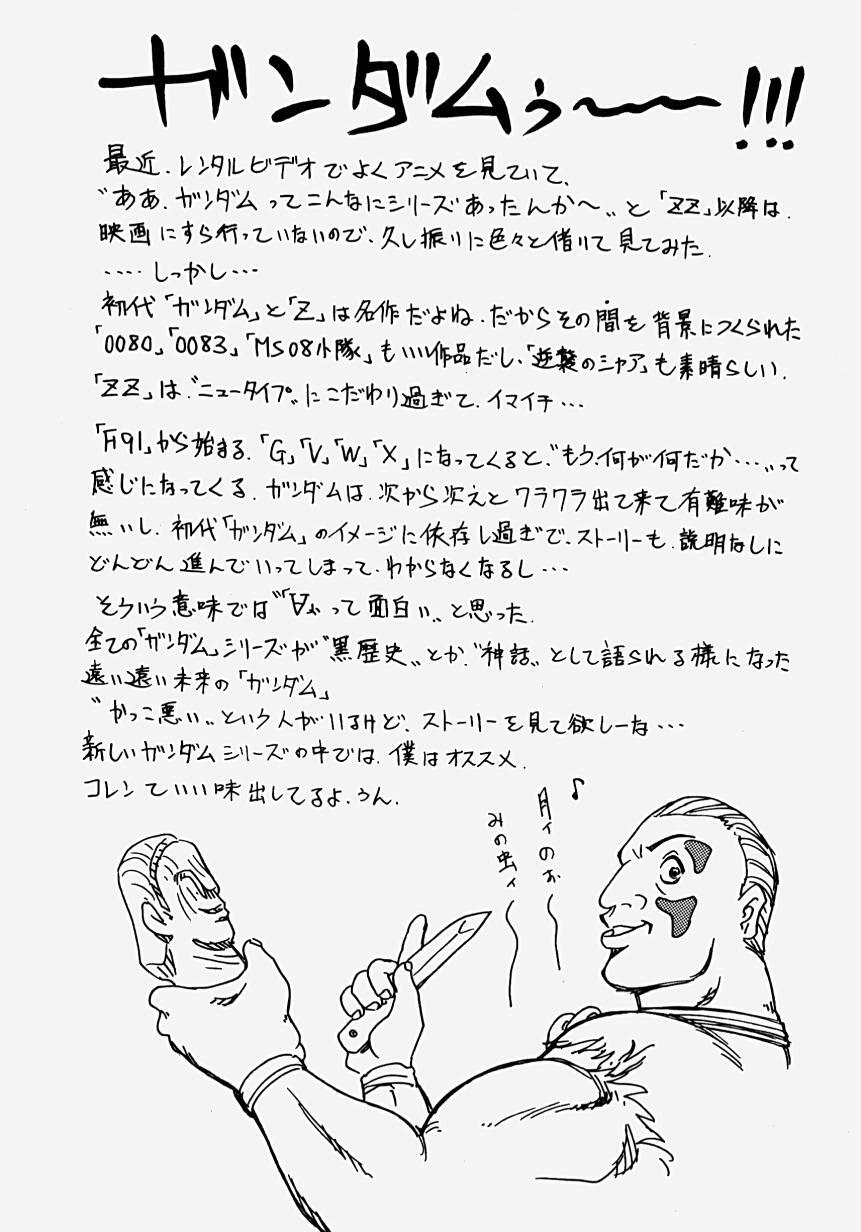 ガンダムぅ〜〜!!!
最近、レンタルビデオでよくアニメを見ていて、
〝ああ、ガンダムってこんなにシリーズあったんか〜〟と「ZZ」以降は、
映画にすら行っていないので、久し振りに色々と借りて見てみた。
‥‥しっかし‥‥
初代「ガンダム」と「Z」は名作だよね。だからその間を背景につくられた
「0080」「0083」「MS08小隊」もいい作品だし、「逆襲のシャア」も素晴らしい。
「ZZ」は、〝ニュータイプ〟にこだわり過ぎて、イマイチ‥‥
「F91」から始まる、「G」「V」「W」「X」になってくると、〝もう、何が何だか‥‥〟って
感じになってくる。ガンダムは、次から次えとワラワラ出て来て有難味が
無いし、初代「ガンダム」のイメージに依存し過ぎで、ストーリーも、説明なしに
どんどん進んでいってしまって、わからなくなるし‥‥
そういう意味では〝∀〟って面白い。と思った。
全ての「ガンダム」シリーズが〝黒歴史〟とか、〝神話〟として語られる様になった
遠い遠い未来の「ガンダム」
〝かっこ悪い〟という人がいるけど、ストーリーを見て欲しーな‥‥
新しいガンダムシリーズの中では、僕はオススメ。
コレンていい味出してるよ、うん。
♪
月ィのぉ〜
みの虫ィ〜